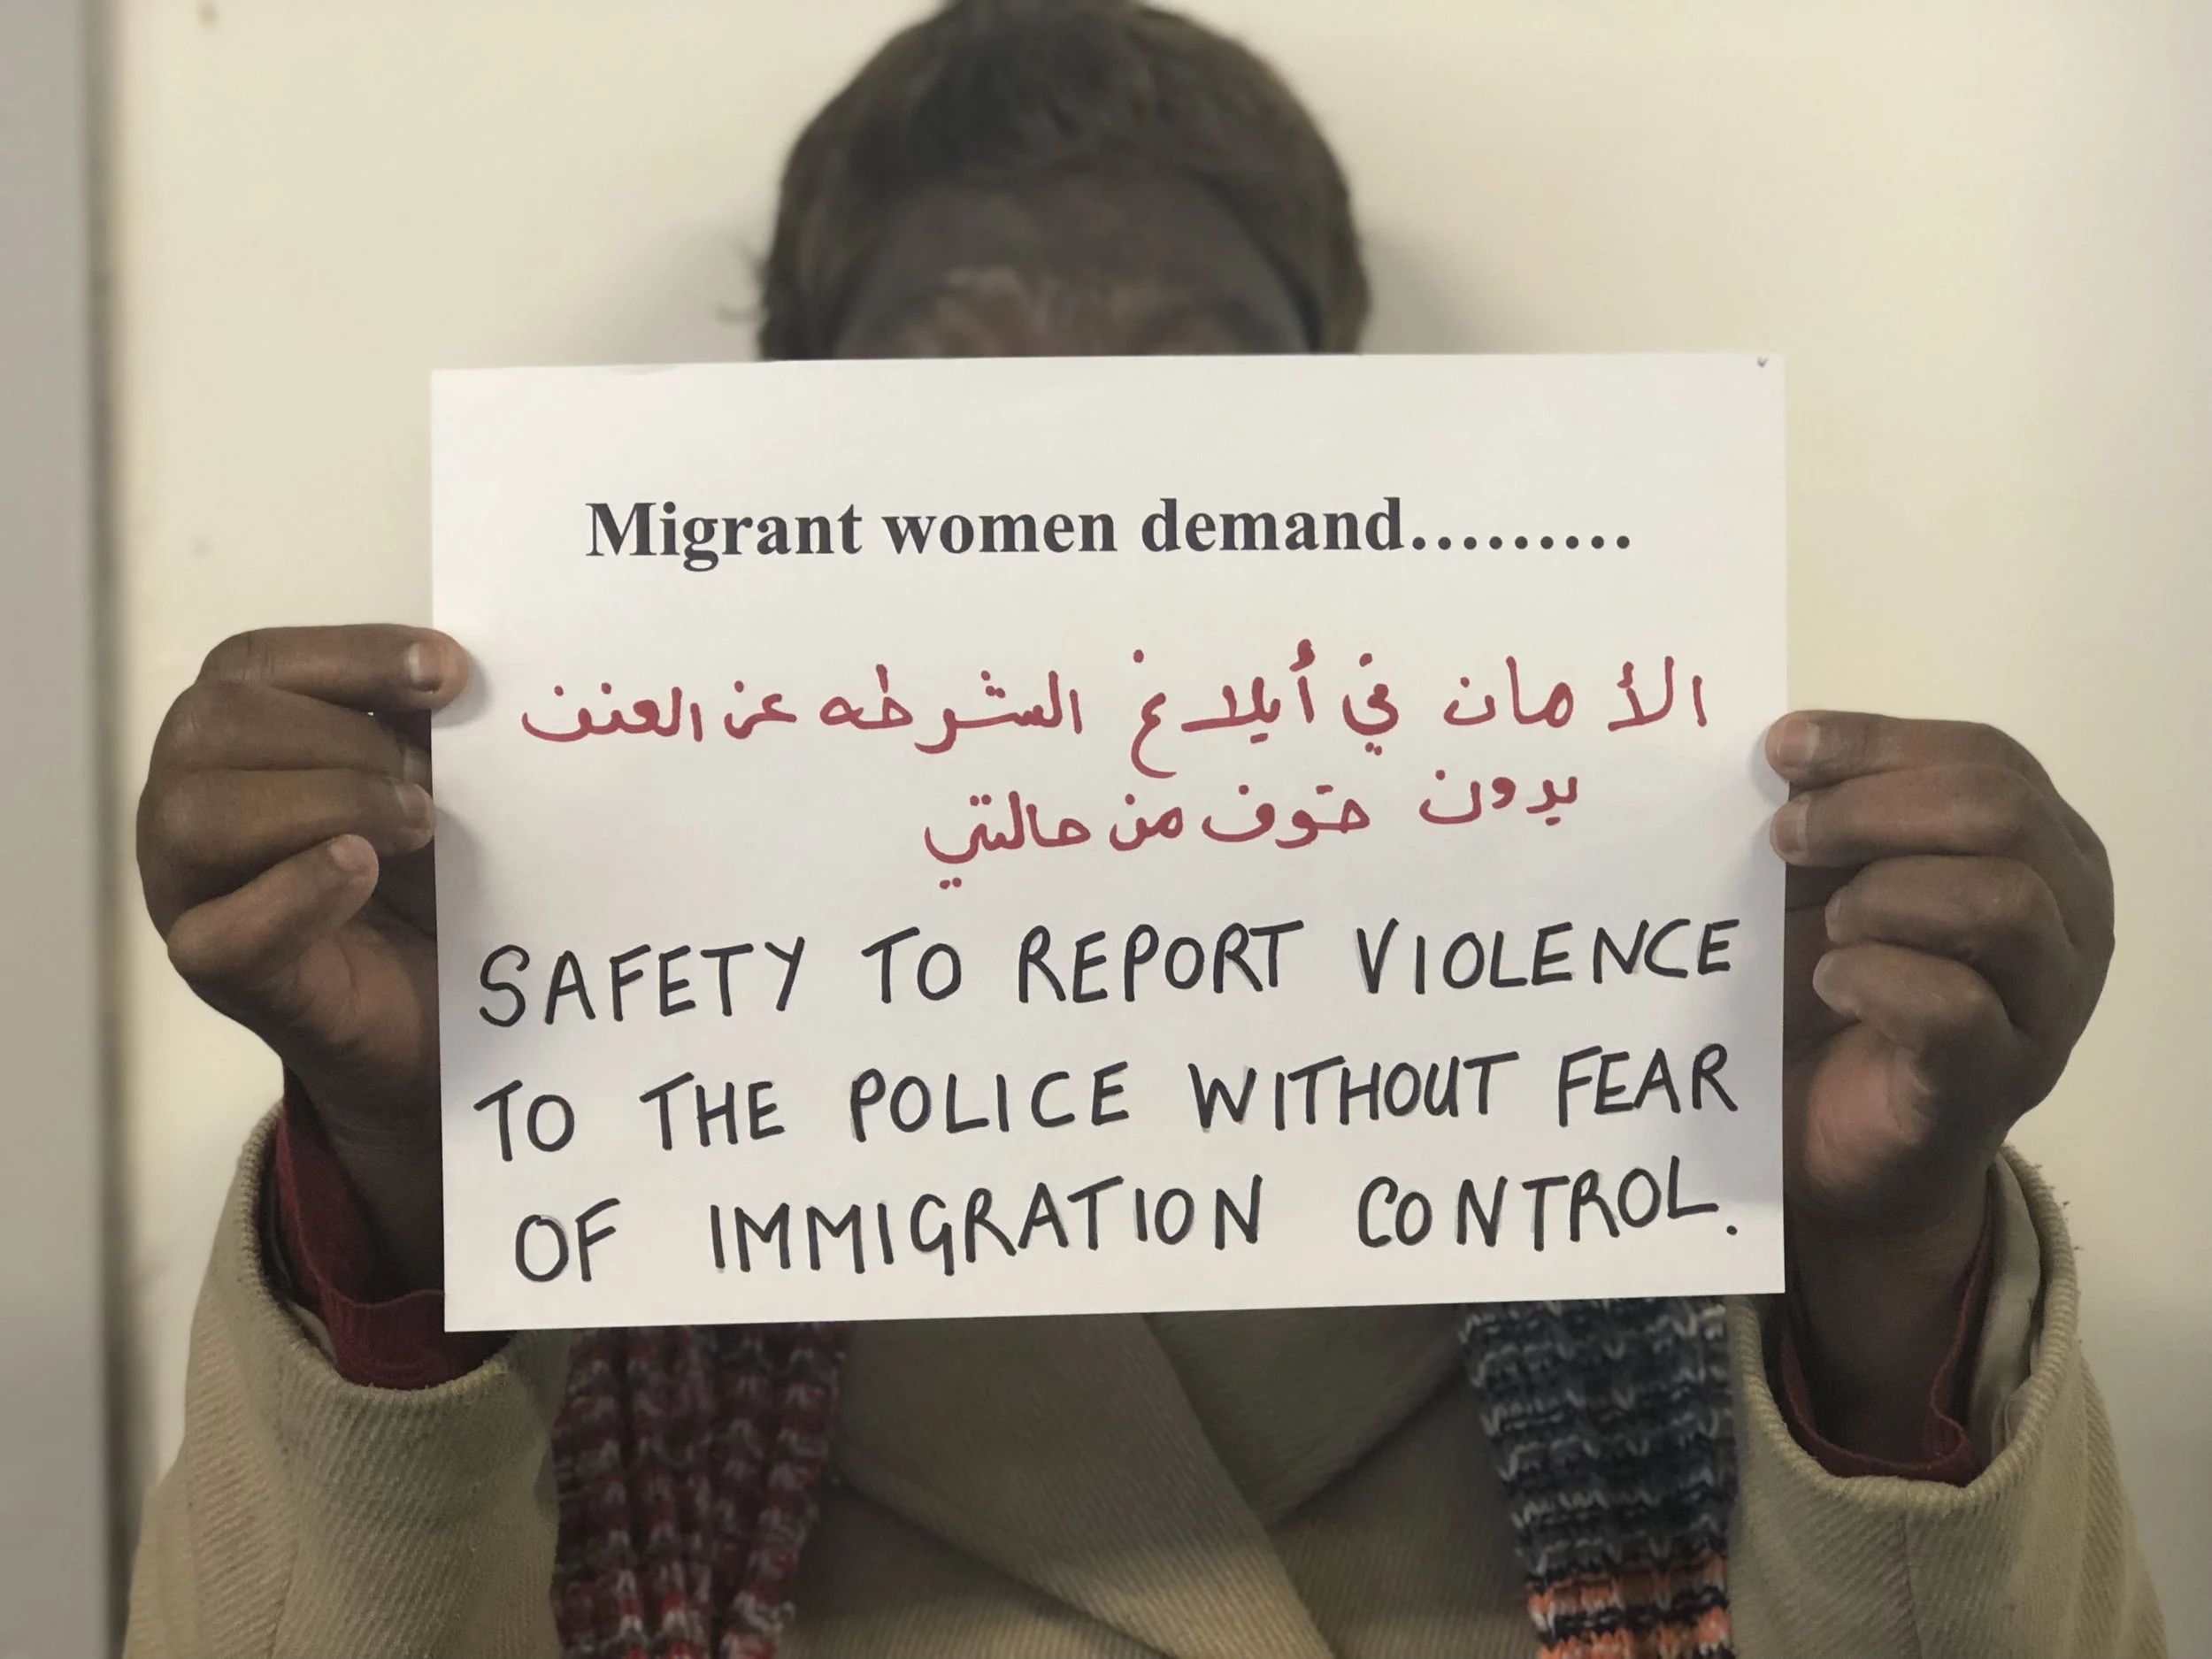 Migrant women demand.........
الأ مان في أبلاغ الشرطه عن العنف
بدون خوف من حالتي
SAFETY TO REPORT VIOLENCE
TO THE POLICE WITHOUT FEAR
OF IMMIGRATION CONTROL.